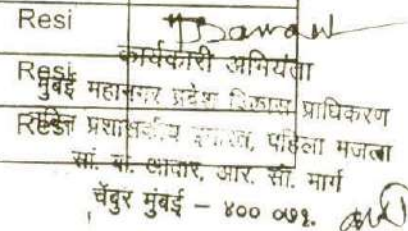 Resi
कार्यकारी अभियंता
Resi
मुंबई महानगर प्रदेश विकास प्राधिकरण
Resi
प्रशासकीय इमारत, पहिला मजला
सां. बां. आवार, आर. सी. मार्ग
चेंबुर मुंबई – ४०० ०७१.